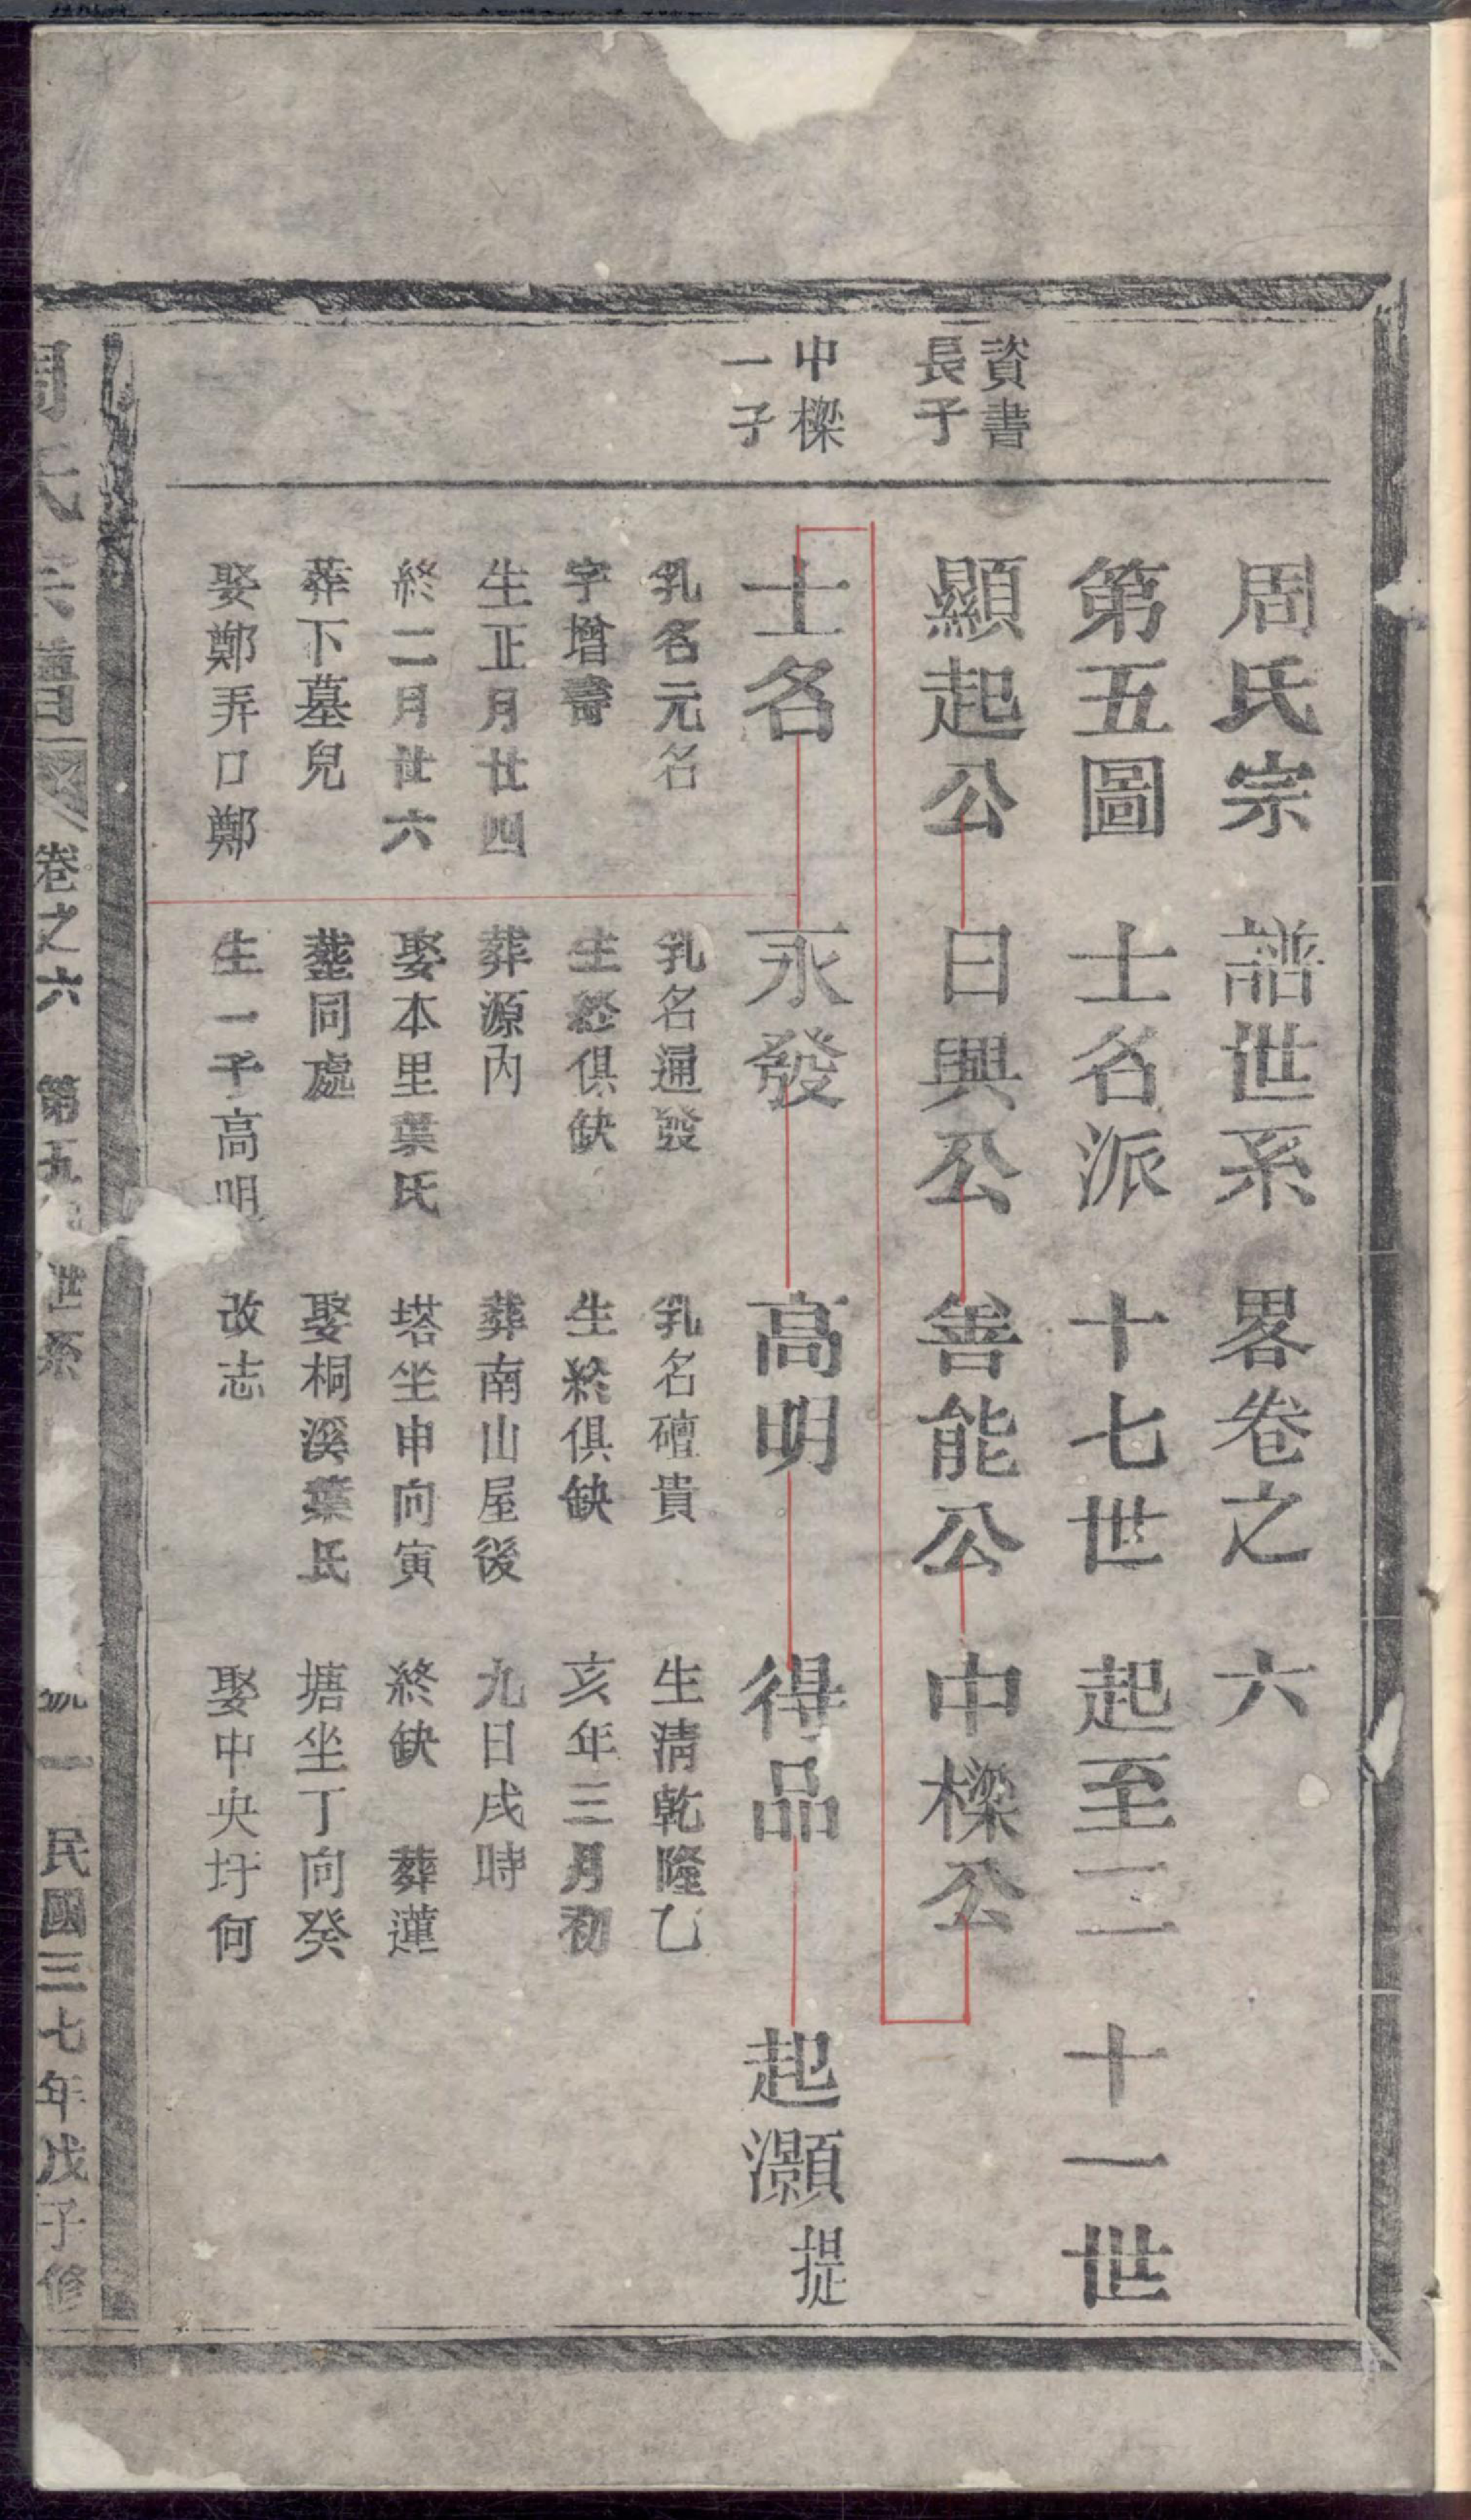 周氏宗譜世系畧卷之六
第五圖士名派十七世起至二十一世
資書
長子
顯起公 日興公 善能公 中樑公
中樑
一子
士名 永發 高明 得品 起灝 提
乳名元名
字增壽
生正月廿四
終二月廿六
葬下墓兒
娶鄭弄口鄭
乳名通發
生終俱缺
葬源內
娶本里葉氏
塟同處
生一子高明
乳名礶貴
生終俱缺
葬南山屋後
塔坐申向寅
娶桐溪葉氏
改志
生清乾隆乙
亥年三月初
九日戌時
終缺 葬蓮
塘坐丁向癸
娶中央圩何
周氏宗譜 卷之六 第五 世系 號一 民國三七年戊子修